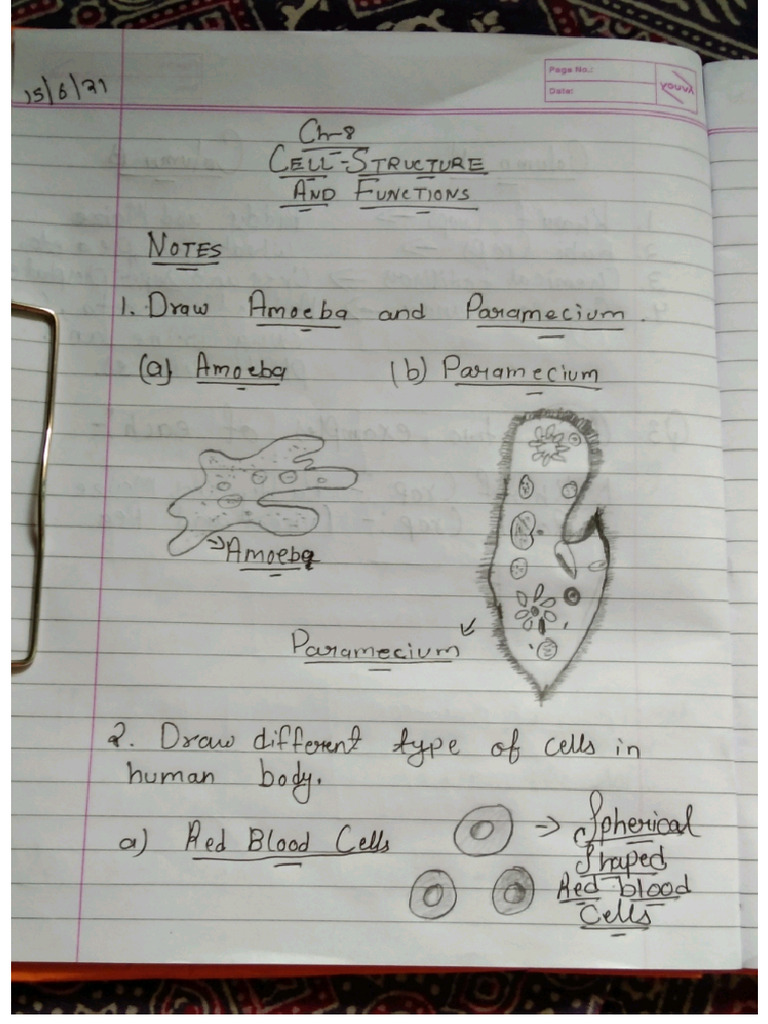 15/6/21
Page No.:
Date:
youva
Ch-8
CELL-STRUCTURE
AND FUNCTIONS
NOTES
1. Draw Amoeba and Paramecium.
(a) Amoeba (b) Paramecium
→ Amoeba
Paramecium
2. Draw different type of cells in
human body.
a) Red Blood Cells → Spherical
Shaped
Red blood
Cells